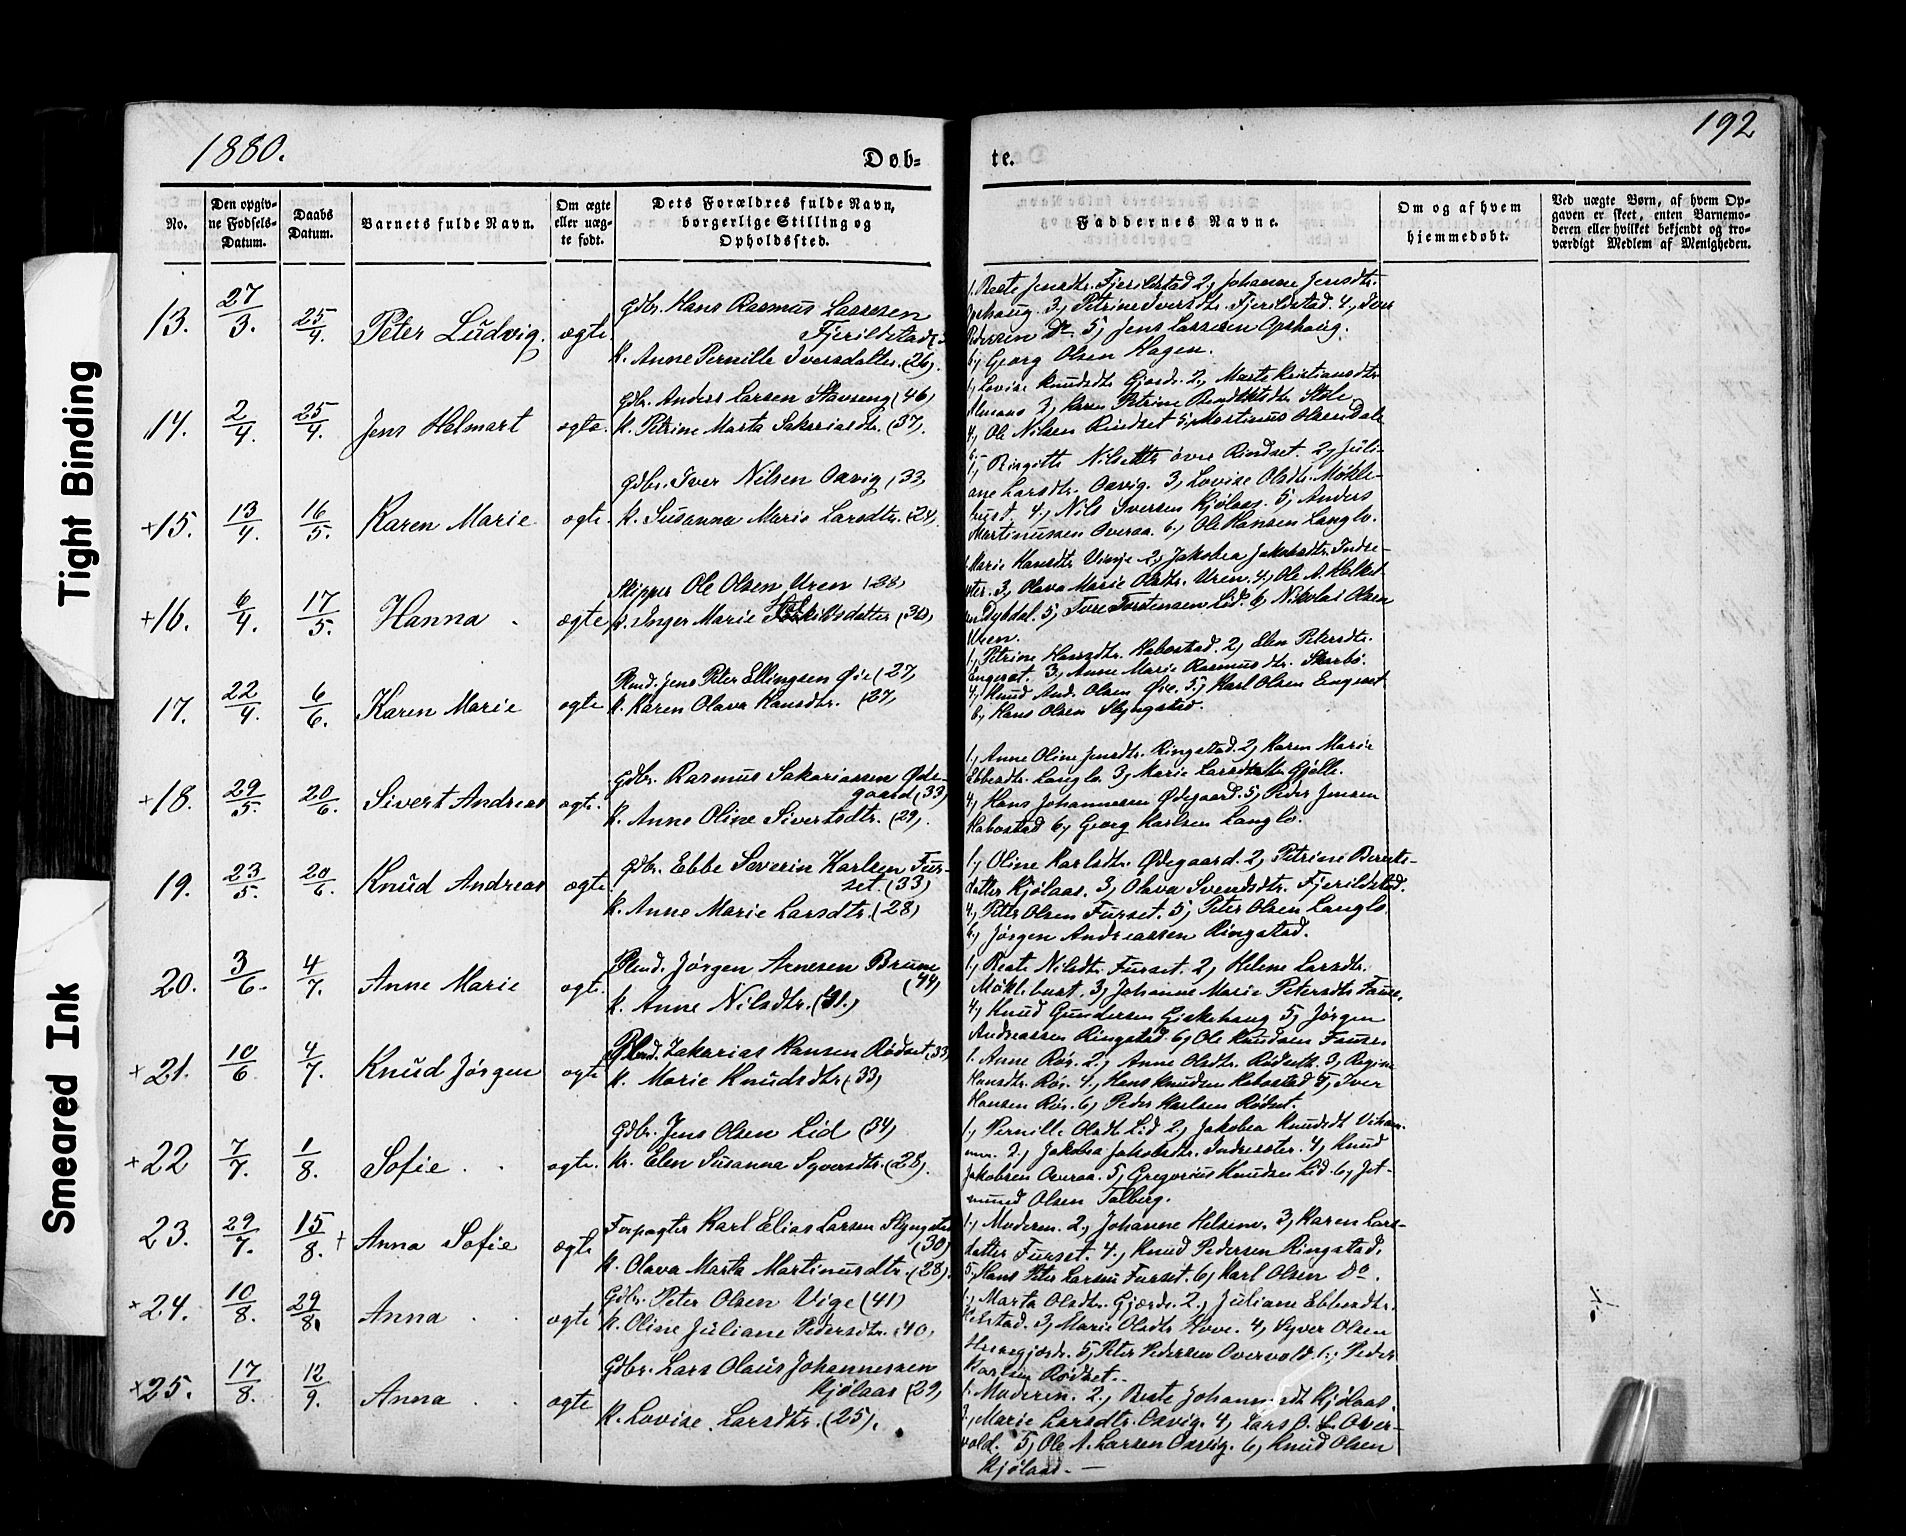 1880.
Døb-
te.
192
Tight Binding
Smeared Ink
No.
Den opgiv-
ne Fødsels-
Datum.
Daabs
Datum.
Barnets fulde Navn.
Om ægte
eller uæg-
te født.
Dets Forældres fulde Navn,
borgerlige Stilling og
Opholdssted.
Faddernes Navne.
Om og af hvem
hjemmedøbt.
Ved uægte Børn, af hvem Op-
gaven er skeet, enten Barnemo-
deren eller hvilket bekjendt og tro-
værdigt Medlem af Menigheden.
13. 27/3. 25/4. Peter Ludvig. ægte.
Gdbr. Hans Rasmus Lassesen
Fjerildstad
K. Anne Pernille Iversdatter. (26).
1, Beate Jensdtr. Fjerildstad 2, Johanne Jensdtr.
Opshaug. 3, Petrine Iversdtr. Fjerildstad. 4, Jens
Pedersen Do. 5, Jens Lassesen Opshaug.
6, Georg Olsen Hagen.
14. 2/4. 25/4. Jens Helmart ægte.
Gdbr. Anders Larsen Stavseng (46)
K. Petrine Marta Sakariasdtr. (37).
1, Lovise Knudsdtr. Gjerde. 2, Marte Kristiansdtr.
3, Karen Petrine
4, Ole Nilsen Rindset 5, Martinus Olsen Dale
6, -
+15. 13/4. 16/5. Karen Marie ægte.
Gdbr. Iver Nilsen Overvig (33)
K. Susanna Maria Larsdtr. (24).
1, Birgitte Nilsdtr øvre Rindset. 2, Juli-
ane Larsdtr. 3, Lovise Olsdtr. Møkle-
bust. 4, Nils Iversen Kjølaas. 5, Anders
Martinussen Overaa. 6, Ole Hansen Langlo.
+16. 6/4. 17/5. Hanna ægte
Skipper Ole Olsen Uren (28)
K. Inger Marie (30)
1, Marie Hansdtr. Viinje 2, Jakobea Jakobsdtr. Indre-
sæter. 3, Olava Marie Olsdtr. Uren. 4, Ole A.
Dybdal. 5, Tore Torstensen Lid. 6, Nikolai Olsen
Uren.
17. 22/4. 6/6. Karen Marie ægte
Rmd. Jens Peter Ellingsen Øie (27)
K. Karen Olava Hansdtr. (27)
1, Petrine Hansdtr. Habostad. 2, Elen Petersdtr.
Engeset. 3, Anne Marie Rasmusdtr. Skarbø.
4, Knud And. Olsen Øie. 5, Karl Olsen Engeset
6, Hans Olsen Slyngstad.
+18. 29/5. 20/6. Sivert Andreas ægte.
Gdbr. Rasmus Sakariassen Øde-
gaard (33)
K. Anne Oline Sivertsdtr. (29).
1, Anne Oline Jensdtr. Ringstad. 2, Karen Marie
Ebbesdtr. Langlo. 3, Marie Larsdatter Gjølle.
4, Hans Johannesen Ødegaard. 5, Peder Jensen
Habostad 6, Georg Karlsen Langlo.
19. 23/5. 20/6. Knud Andreas ægte
Gdbr. Ebbe Severin Karlsen Fur-
set. (33)
K. Anne Marie Larsdtr. (28)
1, Oline Karlsdtr. Ødegaard. 2, Petrine Bernts-
datter Kjølaas. 3, Olava Svendsdtr. Fjerildstad.
4, Peter Olsen Furset. 5, Peter Olsen Langlo.
6, Jørgen Andreassen Ringstad.
20. 3/6. 4/7. Anne Marie ægte.
Jørgen Arnesen Brune
(44)
K. Anne Nilsdtr. (41.)
1, Beate Nilsdtr. Furset. 2, Helene Larsdtr.
Møklebust. 3, Johanne Marie Petersdtr. Fause.
4, Knud Gundersen Giskehaug 5, Jørgen
Andreassen Ringstad. 6, Ole Knudsen Fause.
+21. 10/6. 4/7. Knud Jørgen ægte
Zakarias Hansen Rødset (33)
K. Marie Knudsdtr (33)
1. Anne Rør. 2, Anne Olsdtr. Rødseth. 3, Regine
Hansdtr. Rør. 4, Hans Knudsen Habostad 5, Iver
Hansen Rør. 6, Peder Karlsen Rødset.
+22 7/7. 1/8. Sofie. ægte.
Gdbr. Jens Olsen Lid (34)
K. Elen Susanna Syversdtr. (28).
1, Pernille Olsdtr. Lid 2, Jakobea Knudsdt
3, Jakobea Jakobsdtr. Indresæter. 4, Knud
Jakobsen Overaa. 5, Gregorius Knudsen Lid. 6, Jet-
mund Olsen Talberg.
23. 29/7. 15/8. + Anna Sofie ægte
Forpagter Karl Elias Larsen Slyngstad
(30)
K. Olava Marta Martinusdtr. (28).
1, Moderen. 2, Johanne Helsem. 3, Karen Lars-
datter Furset. 4, Knud Pedersen Ringstad.
5, Hans Peter Larsen Furset. 6, Karl Olsen Do.
+24. 10/8. 29/8. Anna ægte
Gdbr. Peter Olsen Vige (41)
K. Oline Juliane Pedersdtr. (40)
1, Marta Olsdtr. Gjærde. 2, Juliane Ebbesdtr.
3, Marie Olsdtr. Hove. 4, Syver Olsen
5, Peter Pedersen Overvold. 6, Peder
Karlsen Rødset.
+25. 17/8. 12/9. Anna ægte
Gdbr. Lars Olaus Johannessen
Kjølaas (29)
K. Lovise Larsdtr. (25).
1. Moderen. 2, Beate Johannesdt Kjølaas.
3, Marie Larsdtr. 4, Lars O. L. Over-
vold. 5, Ole A. Larsen 6, Knud Olsen
Kjølaas. -